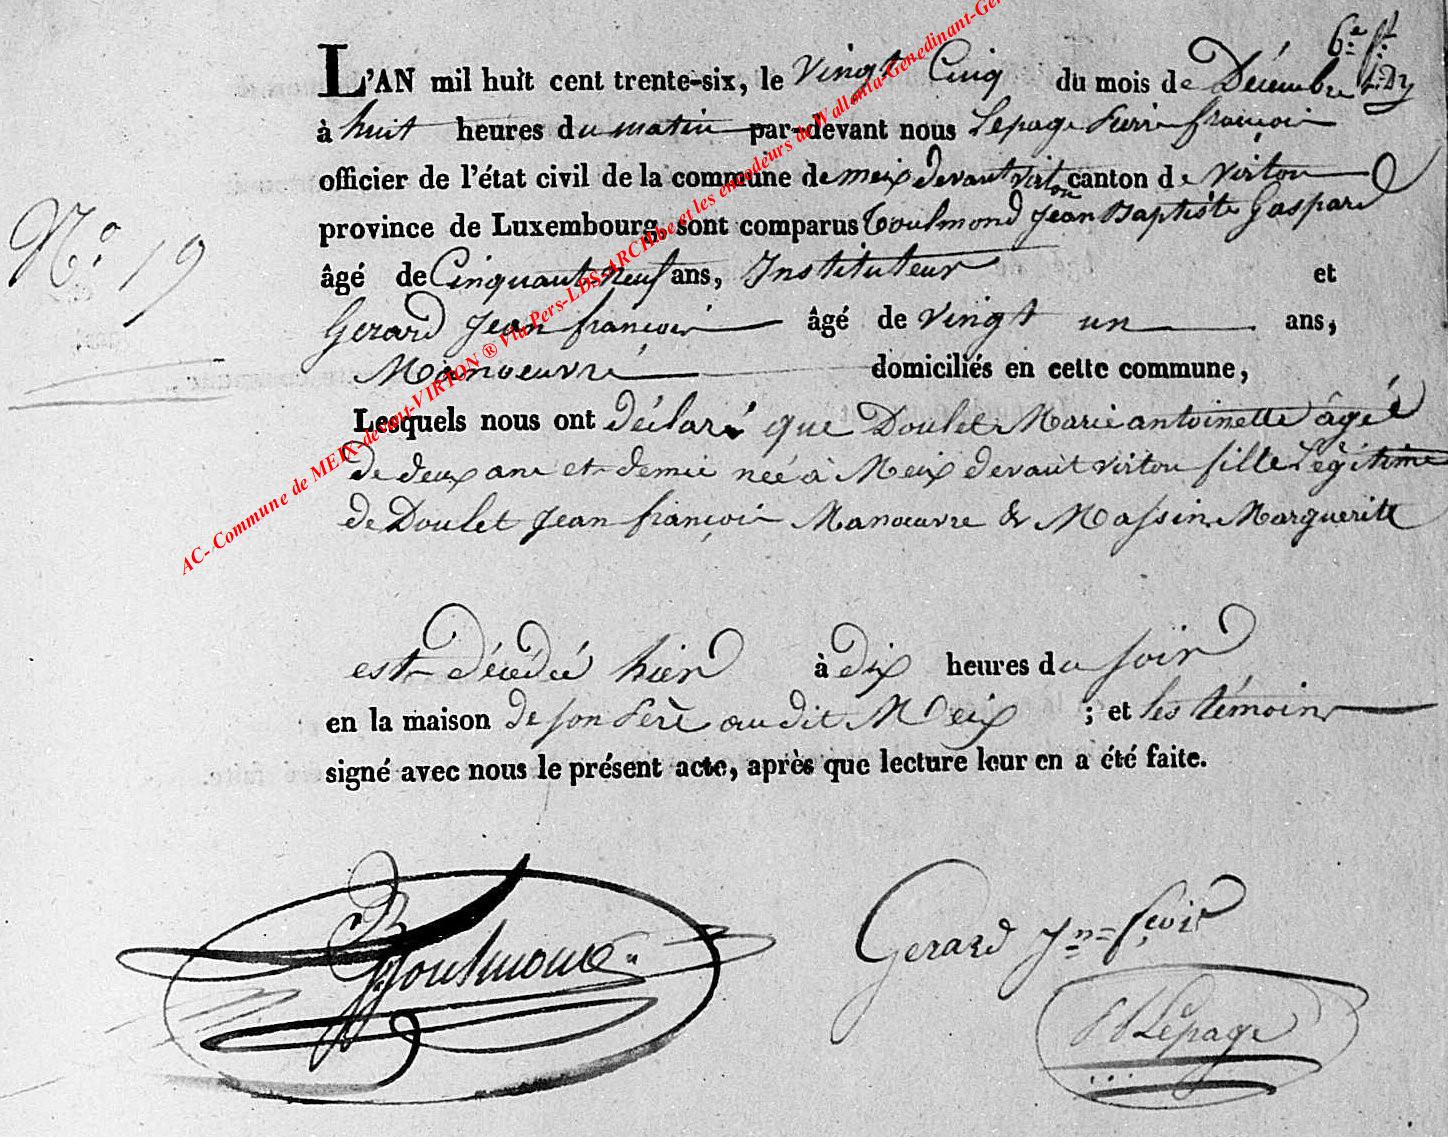 6.e f.t
L'AN mil huit cent trente-six, le vingt Cinq du mois de Décembre
à huit heures du matin par-devant nous Lepage Pierre françois
officier de l'état civil de la commune de meix devant virton canton de virton
N.o 19
province de Luxembourg, sont comparus Toulmond Jean Baptiste Gaspard
âgé de Cinquante neuf ans, Instituteur et
Gerard Jean françois âgé de vingt un ans,
Manoeuvre domiciliés en cette commune,
Lesquels nous ont déclaré que Doulet Marie antoinette âgée
de deux ans et demie née à Meix devant virton fille Légitime
de Doulet Jean françois Manœuvre & Massin Marguerite
est décédée hier à dix heures du soir
en la maison de son Père au dit Meix ; et les témoins
signé avec nous le présent acte, après que lecture leur en a été faite.
Toulmond
Gerard Jn=fçois
Lepage
AC- Commune de MEIX-devant-VIRTON ® Via Pers-LDS-ARCH.be et les encodeurs de Wallonia-Genedinant-Ge